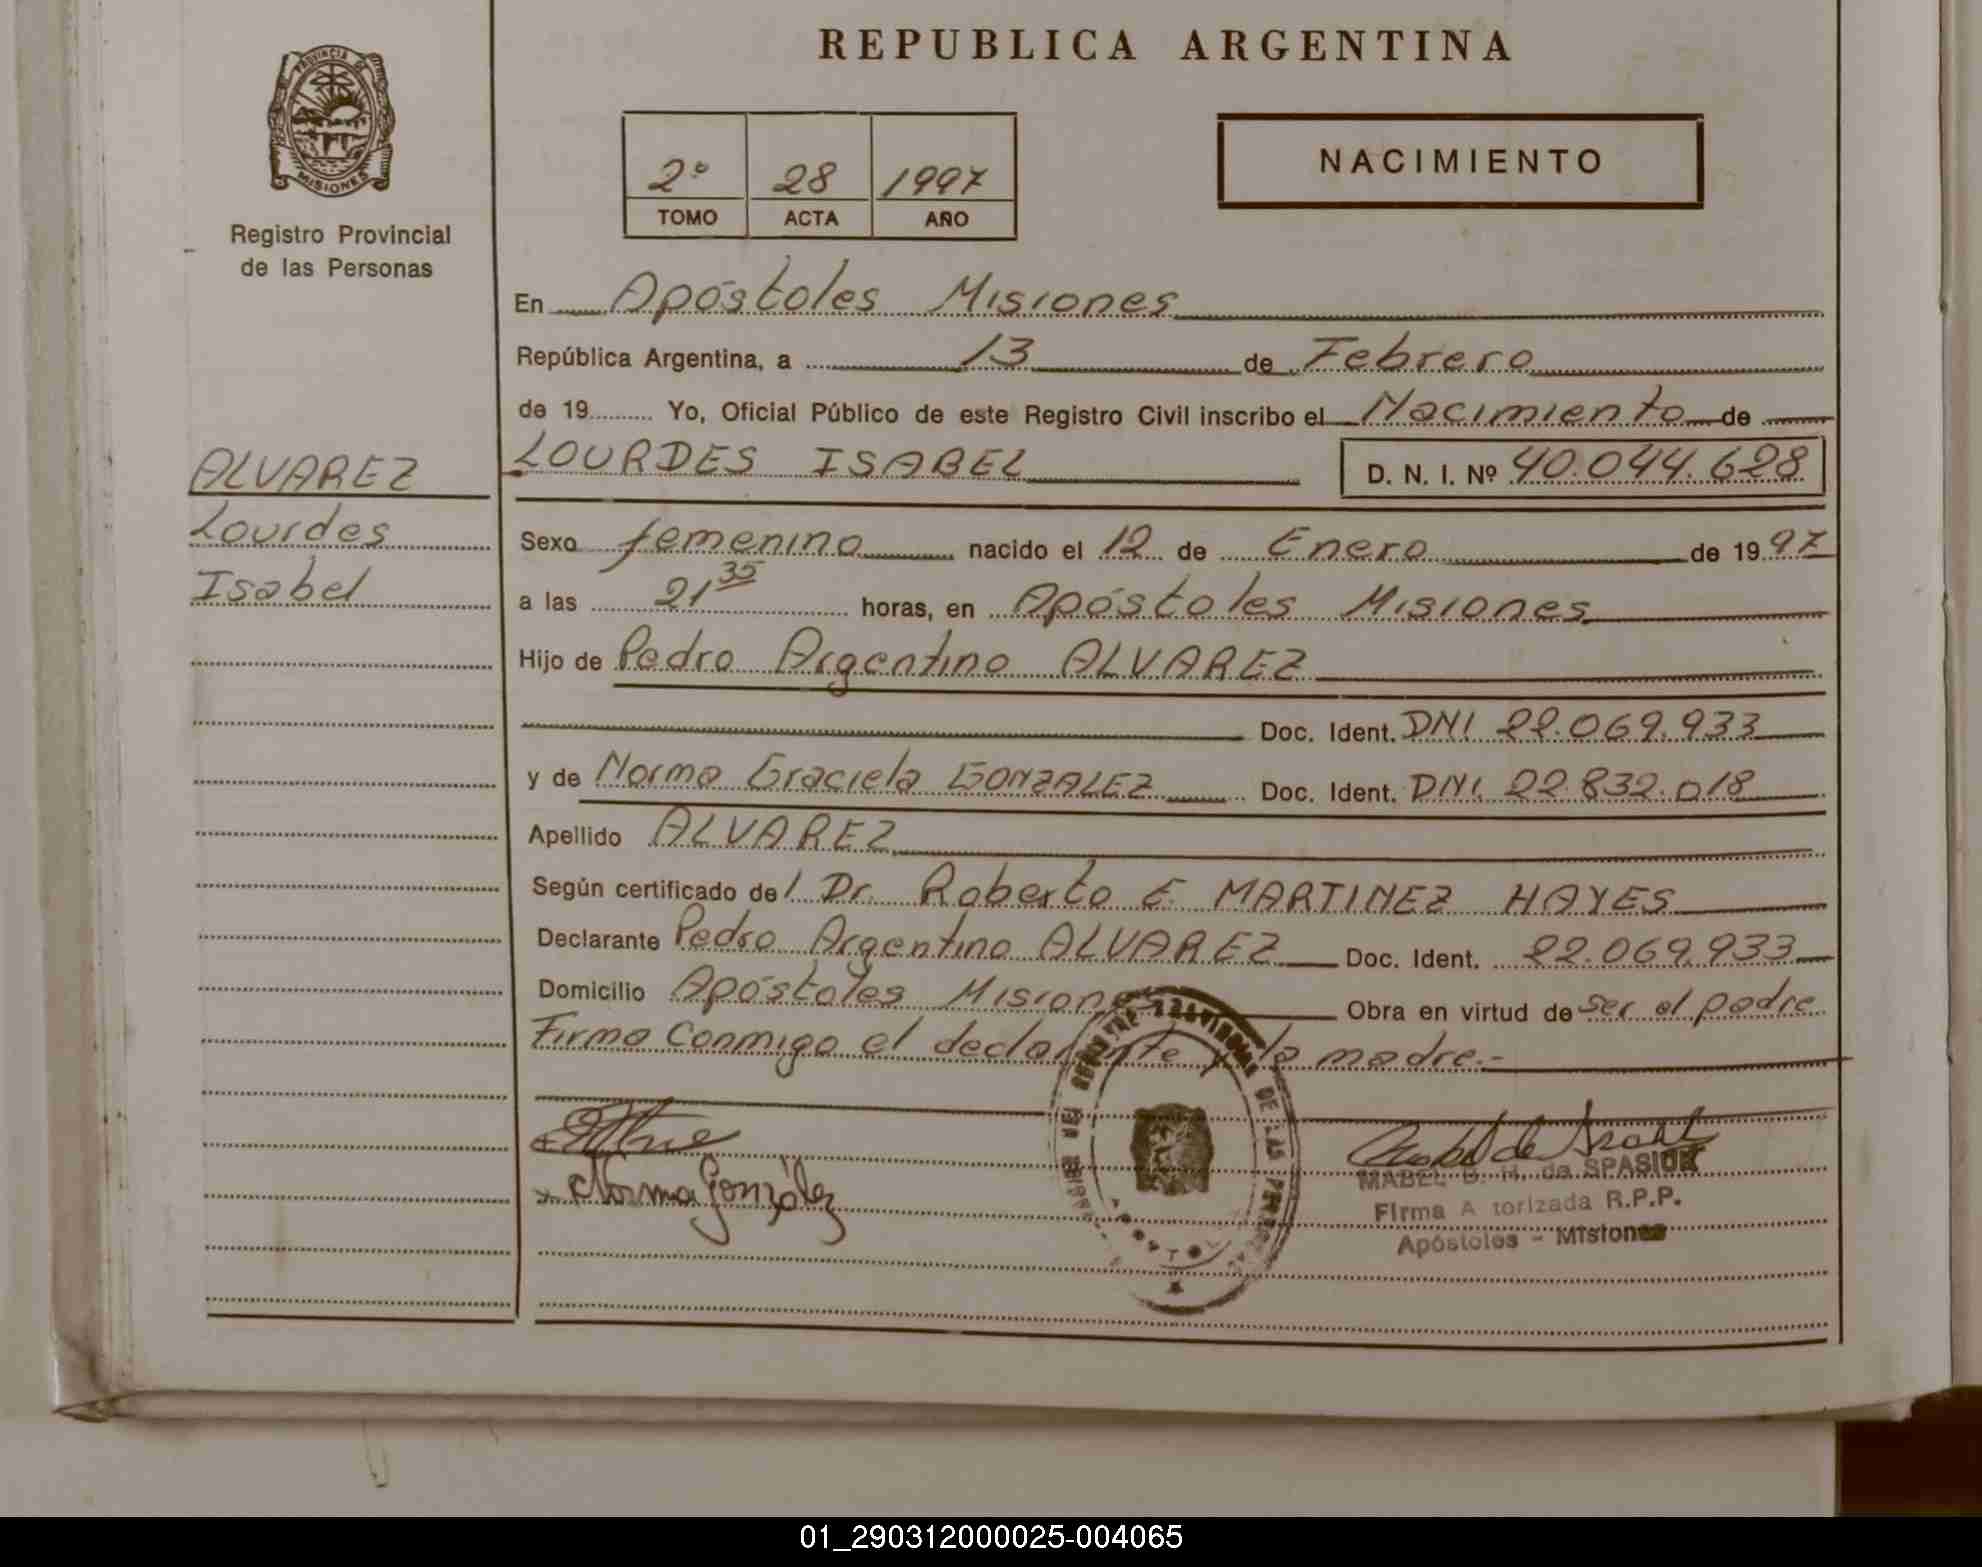 REPUBLICA ARGENTINA
PROVINCIA DE
MISIONES
Registro Provincial
de las Personas
2º 28 1997
TOMO ACTA AÑO
NACIMIENTO
En Apóstoles Misiones
República Argentina, a 13 de Febrero
de 19 Yo, Oficial Público de este Registro Civil inscribo el Nacimiento de
LOURDES ISABEL D. N. I. Nº 40.044.628
ALVAREZ
Lourdes
Isabel
Sexo femenino nacido el 12 de Enero de 1997
a las 21 35 horas, en Apóstoles Misiones
Hijo de Pedro Argentino ALVAREZ
Doc. Ident. DNI 22.069.933
y de Norma Graciela GONZALEZ Doc. Ident. DNI. 22.832.018
Apellido ALVAREZ
Según certificado del Dr. Roberto E. MARTINEZ HAYES
Declarante Pedro Argentino ALVAREZ Doc. Ident. 22.069.933
Domicilio Apóstoles Misiones Obra en virtud de ser el padre
Firma conmigo el declarante y la madre.-
Norma González
MABEL B. H. de SPASIUK
Firma A torizada R.P.P.
Apóstoles - Misiones
01_290312000025-004065